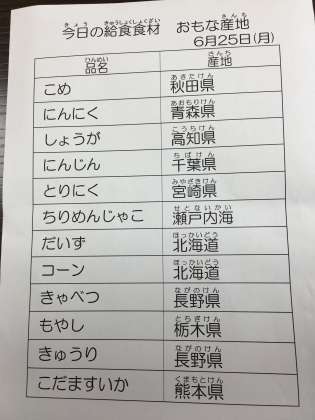 今日の給食食材 おもな産地
6月25日(月)
品名 産地
こめ 秋田県
にんにく 青森県
しょうが 高知県
にんじん 千葉県
とりにく 宮崎県
ちりめんじゃこ 瀬戸内海
だいず 北海道
コーン 北海道
きゃべつ 長野県
もやし 栃木県
きゅうり 長野県
こだますいか 熊本県